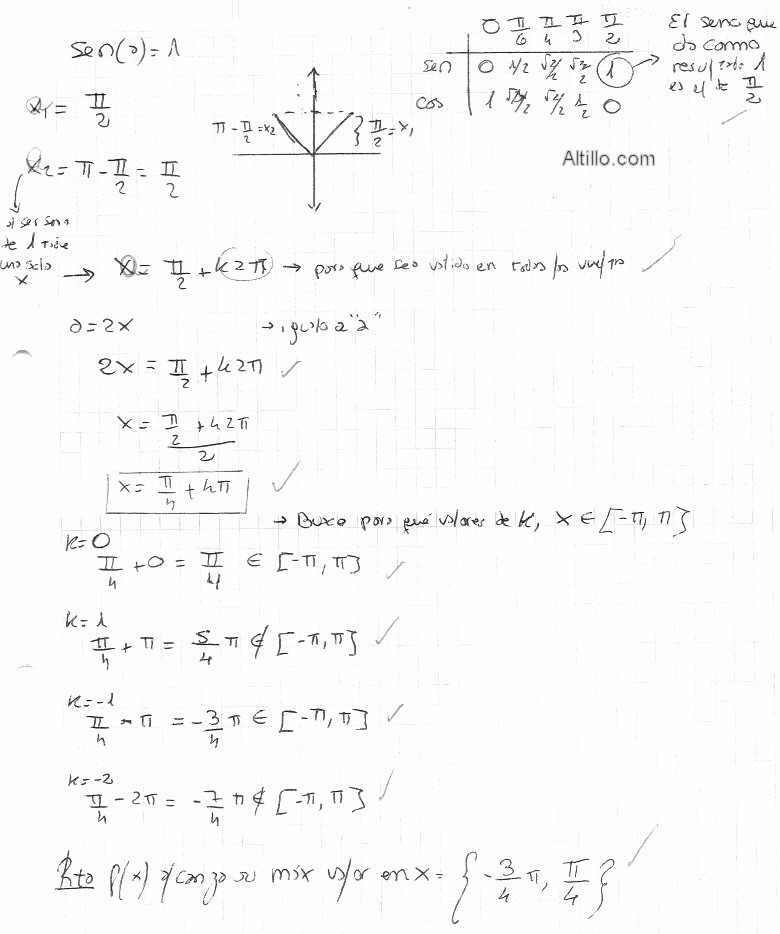 Sen(a)=1
x₁ = π/2
x₂ = π - π/2 = π/2
0 π/6 π/4 π/3 π/2
sen 0 1/2 √2/2 √3/2 1
cos 1 √3/2 √2/2 1/2 0
El seno que
da como
resultado 1
es el de π/2
π - π/2 = x₂
π/2 = x₁
Altillo.com
al ser seno
de 1 tiene
una sola
x
x = π/2 + k2π → para que sea valido en todas las vueltas
a = 2x → igualo a "a"
2x = π/2 + k2π
x = (π/2 + k2π)/2
x = π/4 + kπ
→ Busco para qué valores de k, x ∈ [-π, π]
k=0
π/4 + 0 = π/4 ∈ [-π, π]
k=1
π/4 + π = 5/4 π ∉ [-π, π]
k=-1
π/4 - π = -3/4 π ∈ [-π, π]
k=-2
π/4 - 2π = -7/4 π ∉ [-π, π]
Rta f(x) alcanza su máx valor en x = {-3/4 π, π/4}